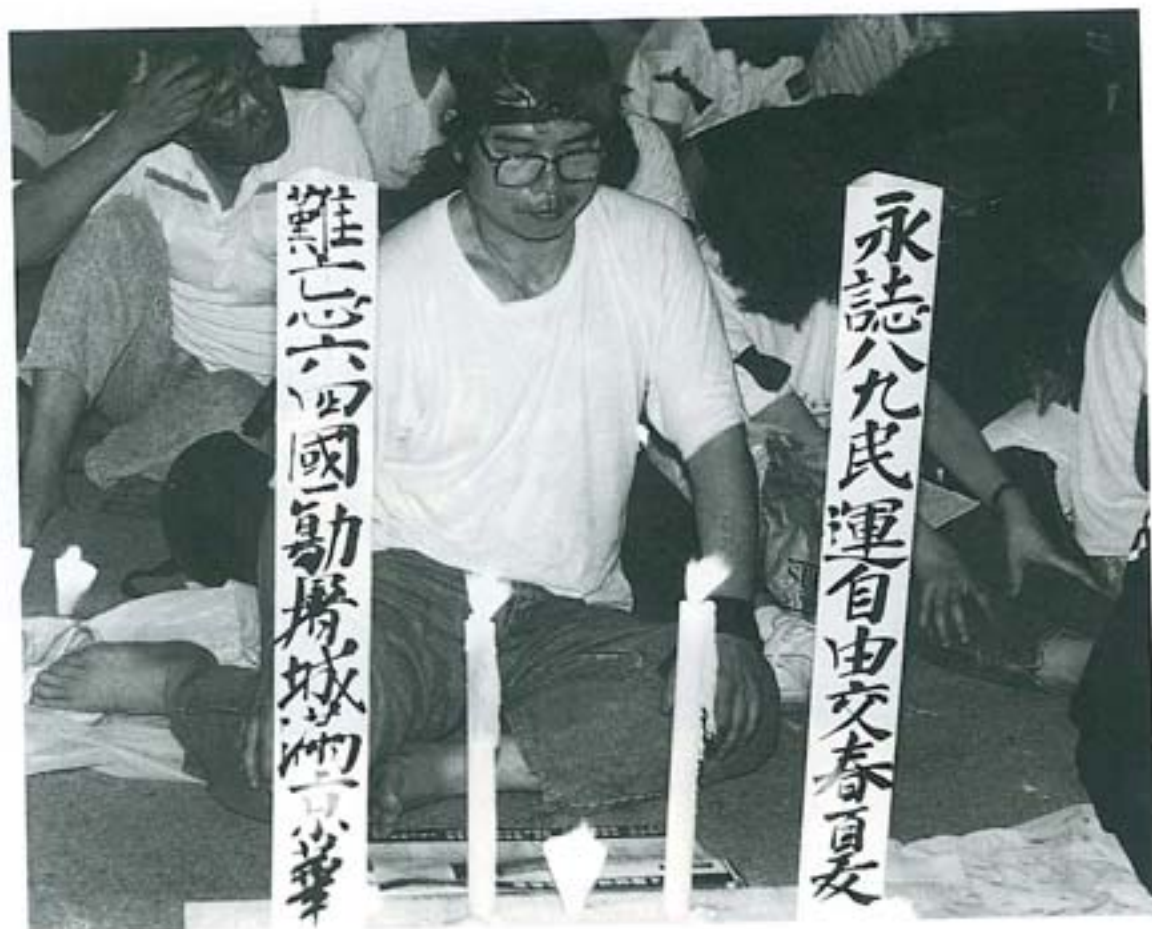 永誌八九民運自由交春夏
難忘六四國城京華